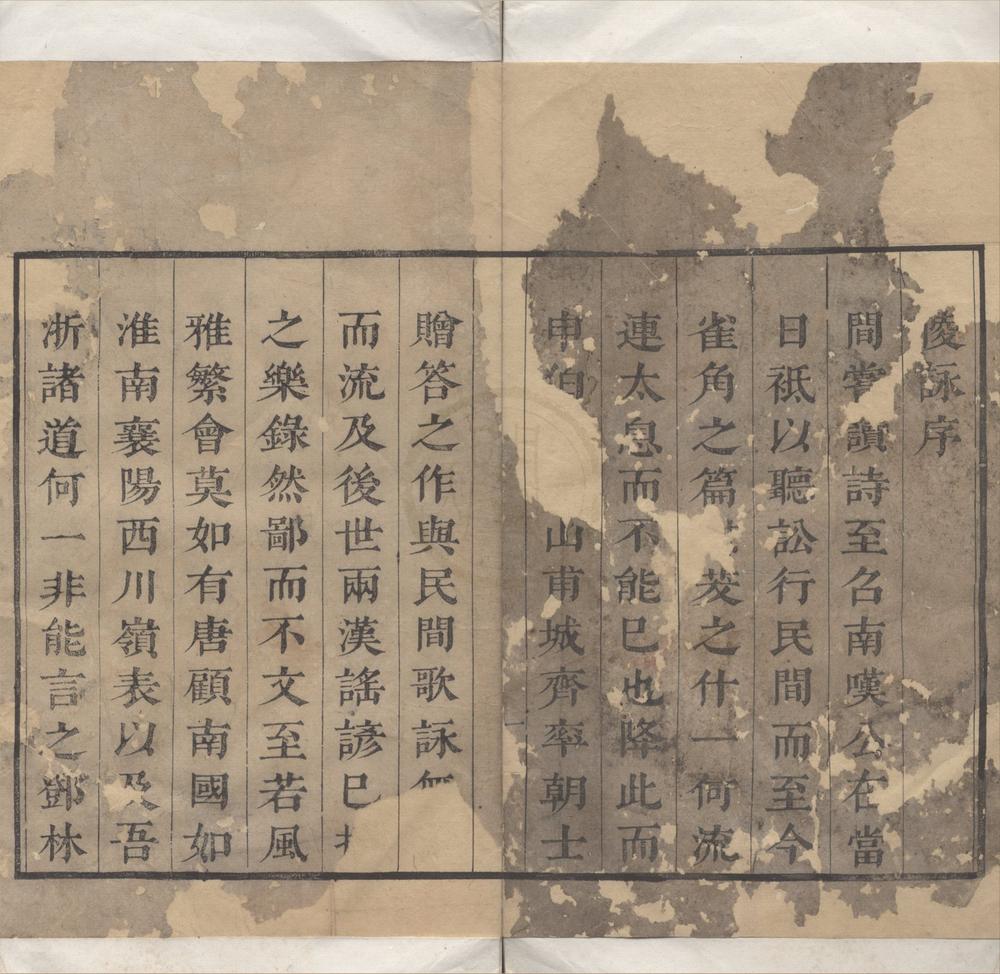 詠序
間嘗讀詩至召南嘆公在當
日衹以聽訟行民間而至今
雀角之篇茇之什一何流
連太息而不能已也降此而
申伯山甫城齊率朝士
贈答之作與民間歌詠
而流及後世兩漢謠諺巳
之樂錄然鄙而不文至若風
雅繁會莫如有唐顧南國如
淮南襄陽西川嶺表以及吾
浙諸道何一非能言之鄧林